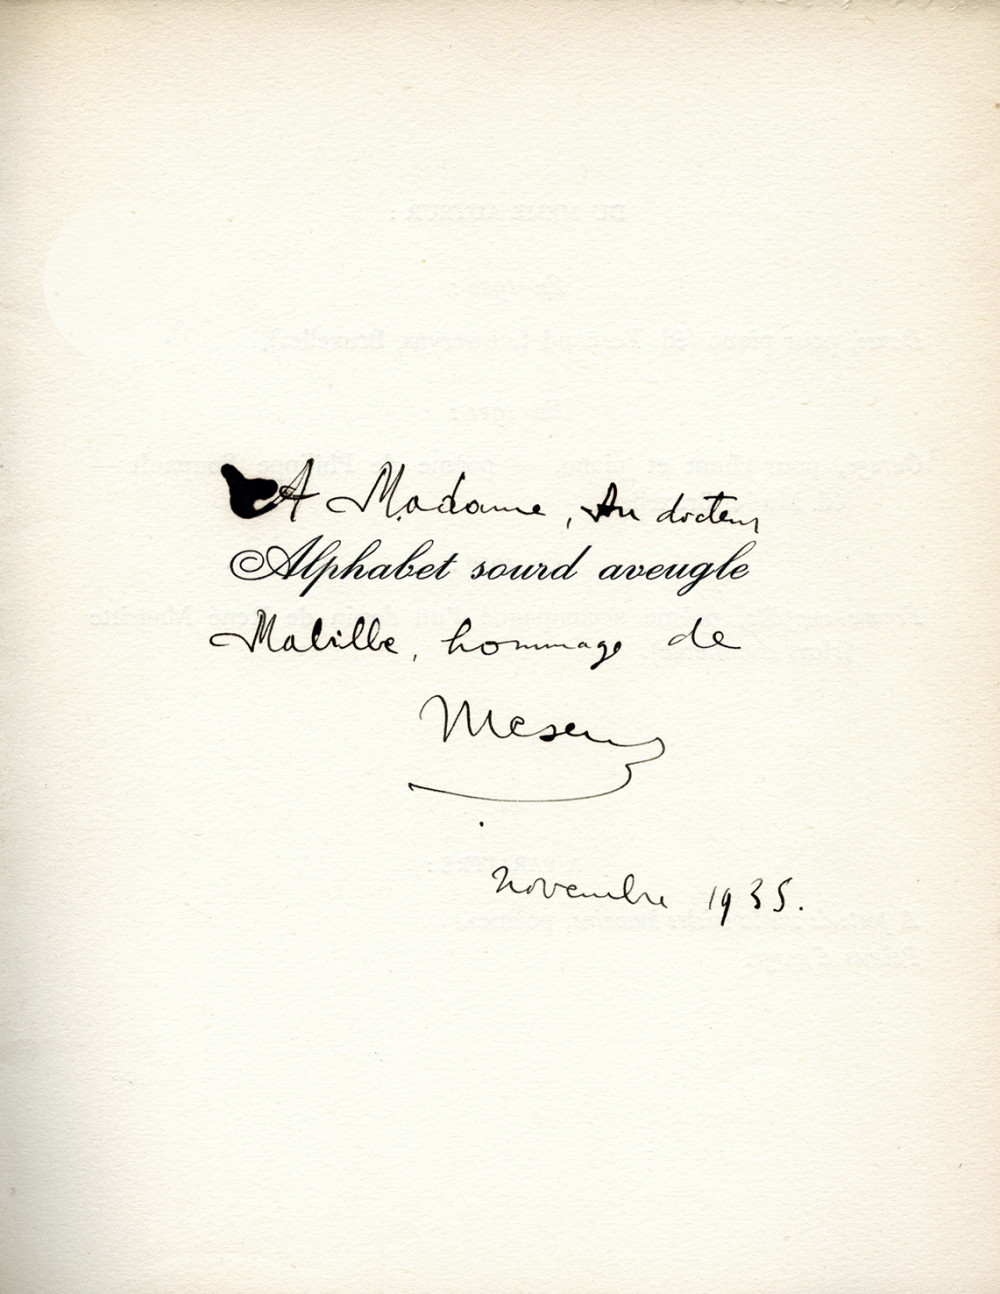 A Madame, Au docteur
Alphabet sourd aveugle
Mabille, hommage de
Mesens
novembre 1935.